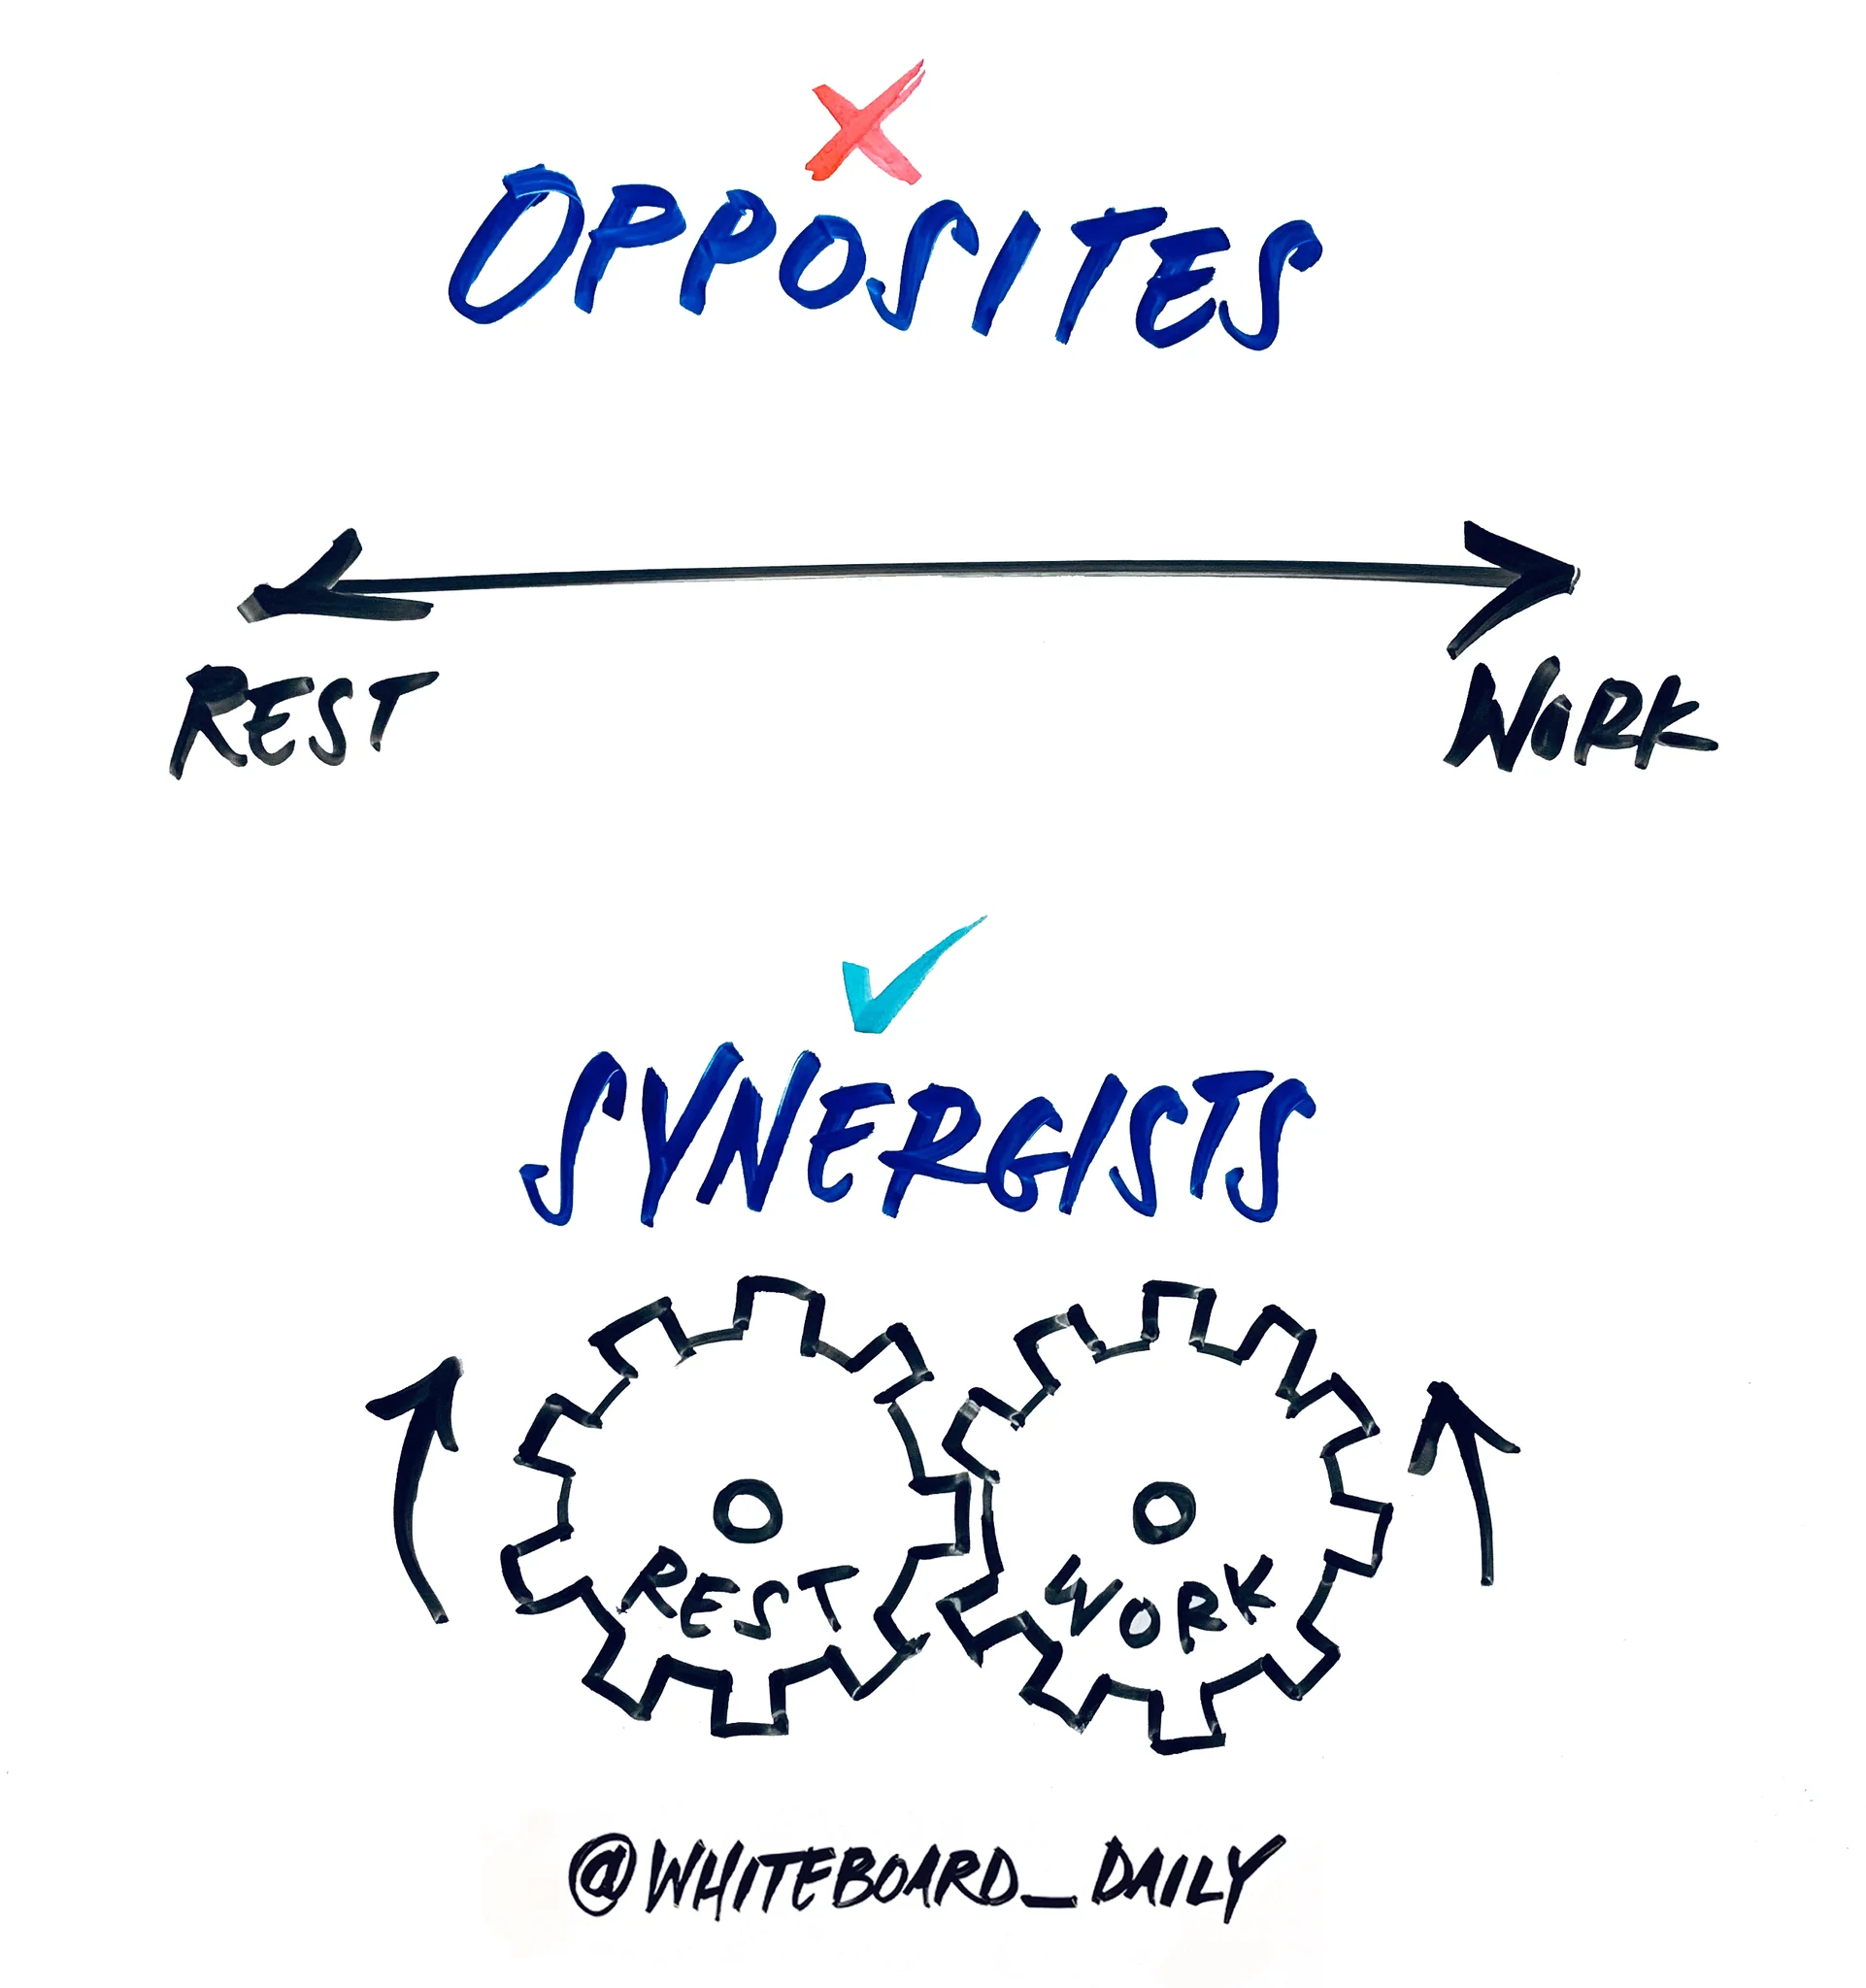 OPPOSITES
REST WORK
SYNERGISTS
REST WORK
@WHITEBOARD_DAILY